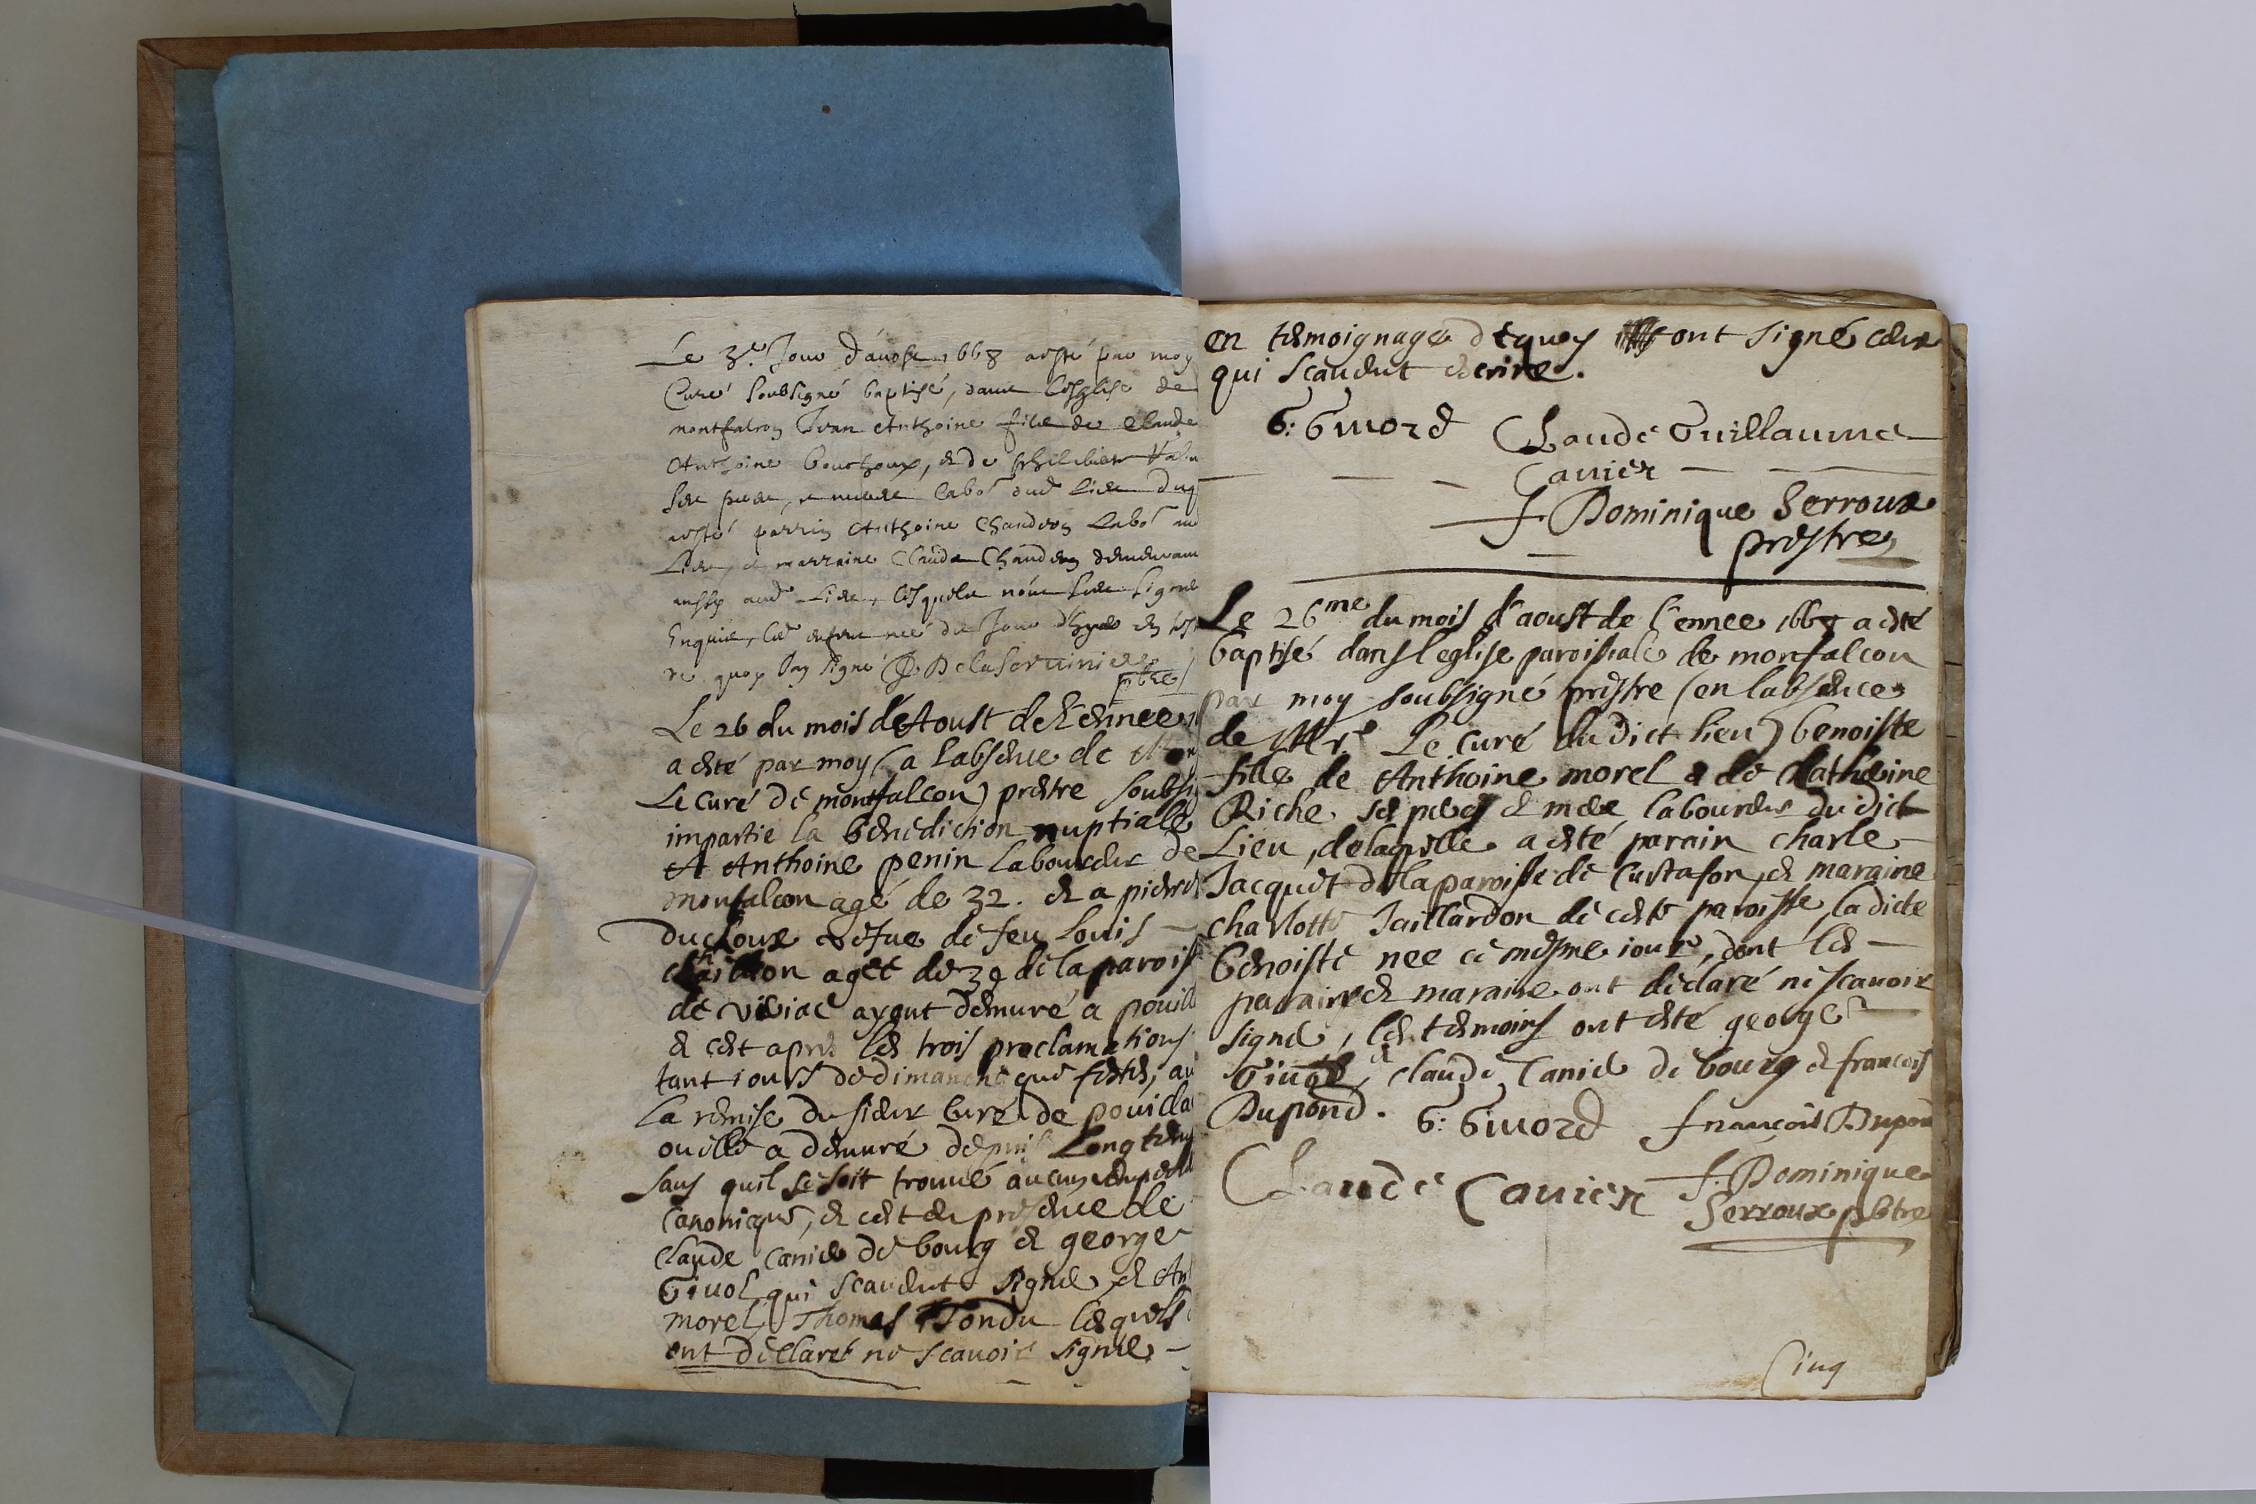 Le 3.e Jour d'aoust 1668 a esté par moy
Curé soubsigné baptisé, dans l'esglise de
montfalcon Jean Anthoine filz de Claude
Anthoine bouchoux, & de philiberte
ses pere, et mere labo.r dud lieu duq
a esté parrin Anthoine Chaudron labo.r au
Lieu, et marraine Claude Chaudron demeurant
aussy aud Lieu, lesquels n'ont sceu signer
Enquis, led enfant néé du Jour d'hyer en foy
de quoy Jay signé Delaserviniere
pbre
Le 26 du mois de Aoust de l'ennee
a esté par moy (a labsence de Mon
Le curé de montfalcon) prestre soubsi
impartie la benediction nuptiale
A Anthoine penin laboureur de
monfalcon agé de 32. & a pierre
ducloux vefue de feu Louis
agee de 39 de la parois
de viriac ayant demuré a pouill
& cest apres les trois proclamations
tant iours de dimanche que festes, au
la remise du sieur Curé de pouilla
ou elle a demuré depuis Longtemps
sans quil se soit trouué aucun empech
Canonique, & cest en presence de
Claude Canier de bourg & george
Giuol qui scauent signer, & An
morel, Thomas Tondu lesquels
ont declaré ne scauoir signer
en temoignage de quoy ont signé ceux
qui scauent escrire.
G: Giuord Claude Guillaume
Cauier
f. Dominique Serroux
prestre
Le 26me du mois d'aoust de l'ennee 1668 a esté
baptisé dans l'eglise paroissiale de monfalcon
par moy soubsigné prestre (en labsence
de Mr. Le Curé du dict lieu) benoiste
fille de Anthoine morel & de Catherine
Riche ses pere & mere laboureurs du dict
Lieu, de laquelle a esté parain charle
Jacquet de la paroisse de Curtafon, & maraine
charlotte Jaillardon de ceste paroisse, la dicte
benoiste nee ce mesme iour, dont les
parain & maraine ont declaré ne scauoir
signer, les temoins ont esté george
Giuord, & claude Canier de bourg & francois
Dupond. G: Giuord françois Dupond
Claude Cauier f. Dominique
Serroux pbtre
Cinq